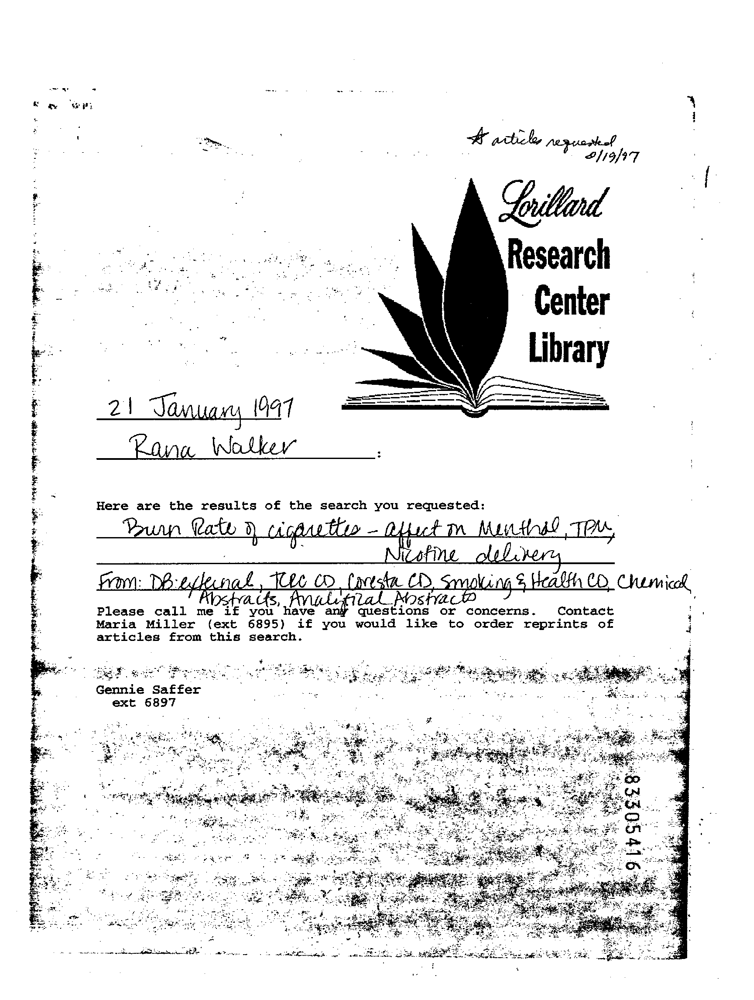 articles requested
Lorillard
Research
Center
Library
21 January 1997
Rana Walker
:
Here are the results of the search you requested:
Burn Rate of cigarettes - affect on Menthol, TPM,
Nicotine delivery
From: DB:external, TCRC CD, Coresta CD, Smoking & Health CD, Chemical
Abstracts, Analytical Abstracts
Please call me if you have any questions or concerns. Contact
Maria Miller (ext 6895) if you would like to order reprints of
articles from this search.
Gennie Saffer
ext 6897
83305416